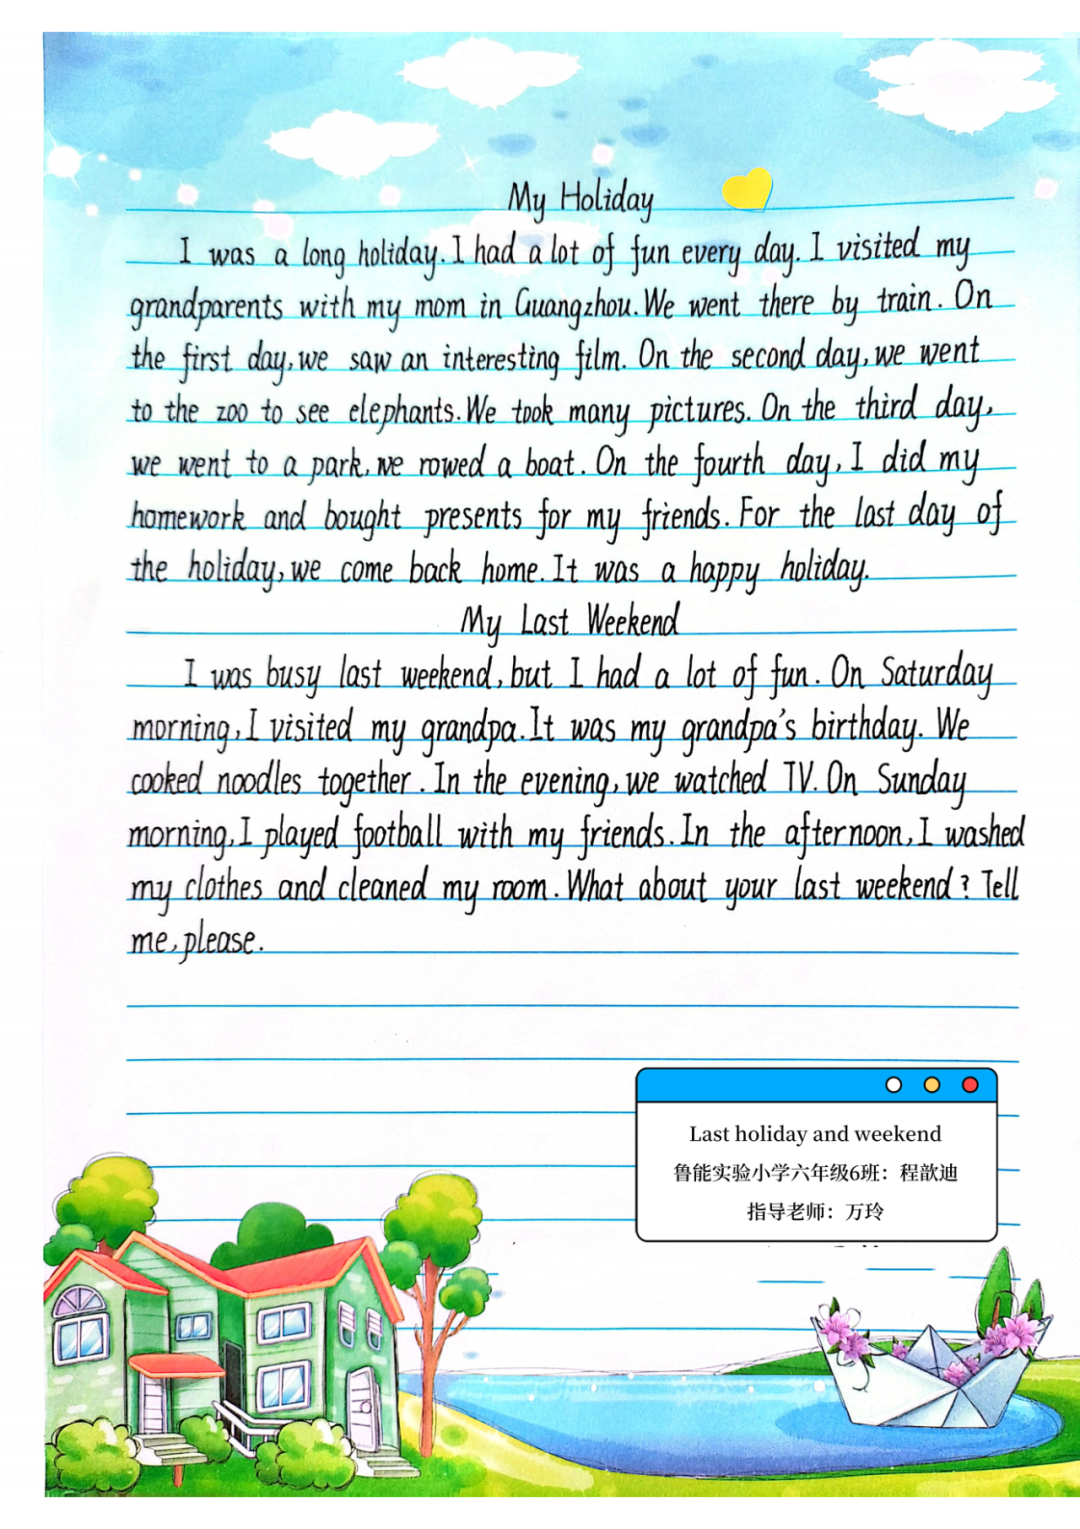 My Holiday
I was a long holiday. I had a lot of fun every day. I visited my
grandparents with my mom in Guangzhou. We went there by train. On
the first day, we saw an interesting film. On the second day, we went
to the zoo to see elephants. We took many pictures. On the third day,
we went to a park, we rowed a boat. On the fourth day, I did my
homework and bought presents for my friends. For the last day of
the holiday, we come back home. It was a happy holiday.
My Last Weekend
I was busy last weekend, but I had a lot of fun. On Saturday
morning, I visited my grandpa. It was my grandpa's birthday. We
cooked noodles together. In the evening, we watched TV. On Sunday
morning, I played football with my friends. In the afternoon, I washed
my clothes and cleaned my room. What about your last weekend? Tell
me, please.
Last holiday and weekend
鲁能实验小学六年级6班：程歆迪
指导老师：万玲